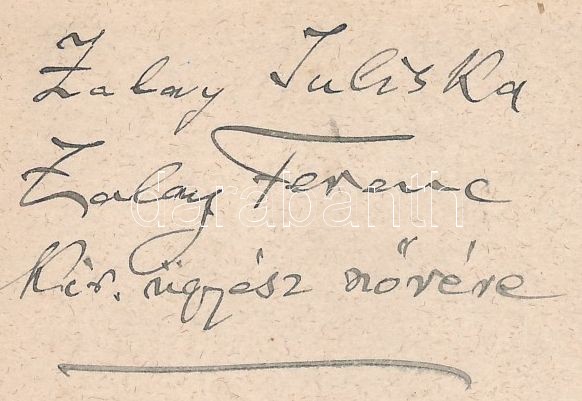 Zalay Juliska
Zalay Ferenc
darabanth
Kir. ügyész nővére